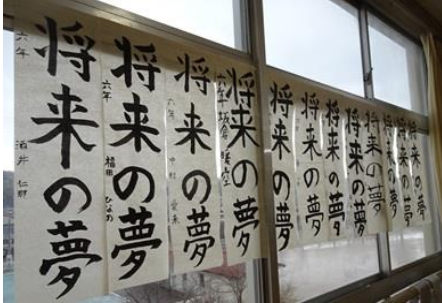 将来の夢
六年
酒井
将来の夢
六年
福田
将来の夢
六年
将来の夢
六年
将来の夢
将来の夢
将来の夢
将来の夢
将来の夢
将来の夢
将来の夢
将来の夢